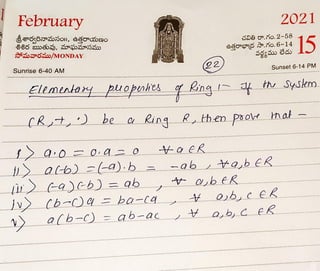 February
2021
శ్రీశార్వరినామసం॥, ఉత్తరాయణం
శిశిర ఋతువు, మాఘమాసము
సోమవారము/MONDAY
చవితి రా.గం.2-58
ఉత్తరాభాద్ర సా.గం.6-14
వర్జ్యం లేదు
15
Sunrise 6-40 AM
Sunset 6-14 PM
22
Elementary properties of Ring :- If the System
(R, +, ·) be a Ring R, then prove that -
i> a.0 = 0.a = 0 ∀ a∈R
ii> a(-b) = (-a).b = -ab, ∀ a,b∈R
iii> (-a)(-b) = ab, ∀ a,b∈R
iv> (b-c)a = ba-ca, ∀ a,b,c∈R
v> a(b-c) = ab-ac, ∀ a,b,c∈R